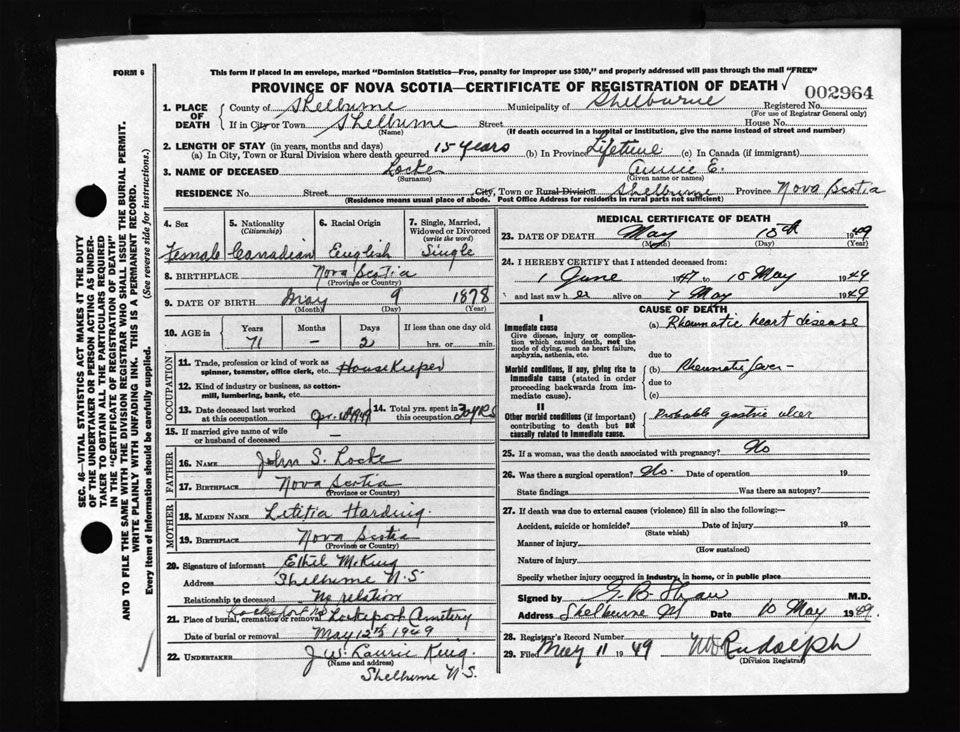 FORM 6
This form if placed in an envelope, marked "Dominion Statistics—Free, penalty for improper use $300," and properly addressed will pass through the mail "FREE"
PROVINCE OF NOVA SCOTIA—CERTIFICATE OF REGISTRATION OF DEATH
002964
1. PLACE OF DEATH County of Shelburne Municipality of Shelburne Registered No.
(For use of Registrar General only)
If in City or Town Shelburne Street House No.
(Name) (If death occurred in a hospital or institution, give the name instead of street and number)
2. LENGTH OF STAY (in years, months and days)
(a) In City, Town or Rural Division where death occurred 15 years (b) In Province Lifetime (c) In Canada (if immigrant)
3. NAME OF DECEASED Locke Annie E.
(Surname) (Given name or names)
RESIDENCE No. Street City, Town or Rural Division Shelburne Province Nova Scotia
(Residence means usual place of abode. Post Office Address for residents in rural parts not sufficient)
4. Sex 5. Nationality (Citizenship) 6. Racial Origin 7. Single, Married, Widowed or Divorced (write the word)
Female Canadian English Single
8. BIRTHPLACE Nova Scotia
(Province or Country)
9. DATE OF BIRTH May 9 1878
(Month) (Day) (Year)
10. AGE in Years Months Days If less than one day old
71 — 2 hrs. or min.
OCCUPATION
11. Trade, profession or kind of work as spinner, teamster, office clerk, etc. HouseKeeper
12. Kind of industry or business, as cotton-mill, lumbering, bank, etc.
13. Date deceased last worked at this occupation Apr. 1949 14. Total yrs. spent in this occupation
15. If married give name of wife or husband of deceased —
FATHER
16. NAME John S. Locke
17. BIRTHPLACE Nova Scotia
(Province or Country)
MOTHER
18. MAIDEN NAME Letitia Harding.
19. BIRTHPLACE Nova Scotia
(Province or Country)
20. Signature of informant Ethel McKing
Address Shelburne N.S
Relationship to deceased No relation
21. Place of burial, cremation or removal Lockeport NS Lockeport Cemetery
Date of burial or removal May 12th 1949
22. UNDERTAKER J. W. Laurie King.
(Name and address)
Shelburne N.S.
MEDICAL CERTIFICATE OF DEATH
23. DATE OF DEATH May 10th 1949
(Month) (Day) (Year)
24. I HEREBY CERTIFY that I attended deceased from:
1 June 1947 to 10 May 1949
and last saw her alive on 7 May 1949
CAUSE OF DEATH
I
Immediate cause
Give disease, injury or complication which caused death, not the mode of dying, such as heart failure, asphyxia, asthenia, etc.
(a) Rheumatic heart disease
due to
Morbid conditions, if any, giving rise to immediate cause (stated in order proceeding backwards from immediate cause).
(b) Rheumatic fever -
due to
(c)
II
Other morbid conditions (if important) contributing to death but not causally related to immediate cause.
Probable gastric ulcer
25. If a woman, was the death associated with pregnancy? No
26. Was there a surgical operation? No. Date of operation 19
State findings Was there an autopsy?
27. If death was due to external causes (violence) fill in also the following:—
Accident, suicide or homicide? Date of injury 19
(State which)
Manner of injury
(How sustained)
Nature of injury
Specify whether injury occurred in industry, in home, or in public place
Signed by M.D.
Address Shelburne NS Date 10 May 1949.
28. Registrar's Record Number
29. Filed May 11 1949 Rudolph
(Division Registrar)
SEC. 46—VITAL STATISTICS ACT MAKES IT THE DUTY
OF THE UNDERTAKER OR PERSON ACTING AS UNDER-
TAKER TO OBTAIN ALL THE PARTICULARS REQUIRED
IN THE "CERTIFICATE OF REGISTRATION OF DEATH"
AND TO FILE THE SAME WITH THE DIVISION REGISTRAR WHO SHALL ISSUE THE BURIAL PERMIT.
WRITE PLAINLY WITH UNFADING INK. THIS IS A PERMANENT RECORD.
Every item of information should be carefully supplied. (See reverse side for instructions.)